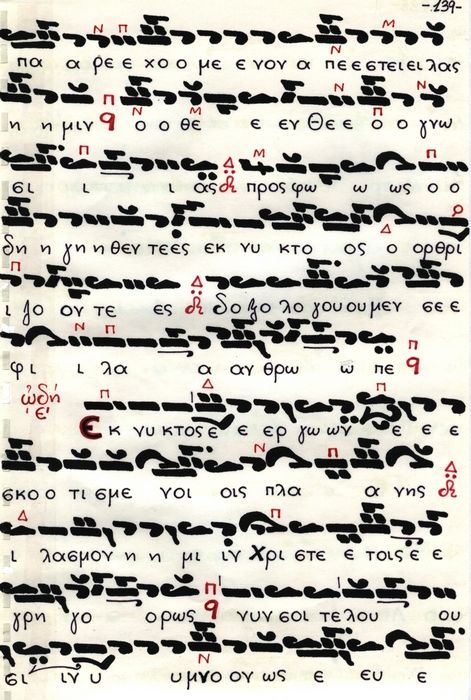 -139-
πα α ρε ε χο ο με ε νον α πε ε στειειλας
η η μιν ο ο θε ε εν θε ε ο ο γνω
σι ι ι ας προς φω ω ως ο ο
δη η γη η θεν τεες εκ νυ κτο ος ο ορθρι
ι ζο ον τε ες δο ξο λο γου ου μεν σε ε
φι ι λα α αν θρω ω πε
ᾠδή ε΄
Εκ νυκτος ε ε ερ γω ων ε ε ε
σκο ο τι σμε νοι οις πλα α νης
ι λασμον η η μι ιν Χρι στε ε τοις ε ε
γρη γο ορως νυν σοι τε λου ου
σι ιν υ υ μνο ον ως ε ευ ε